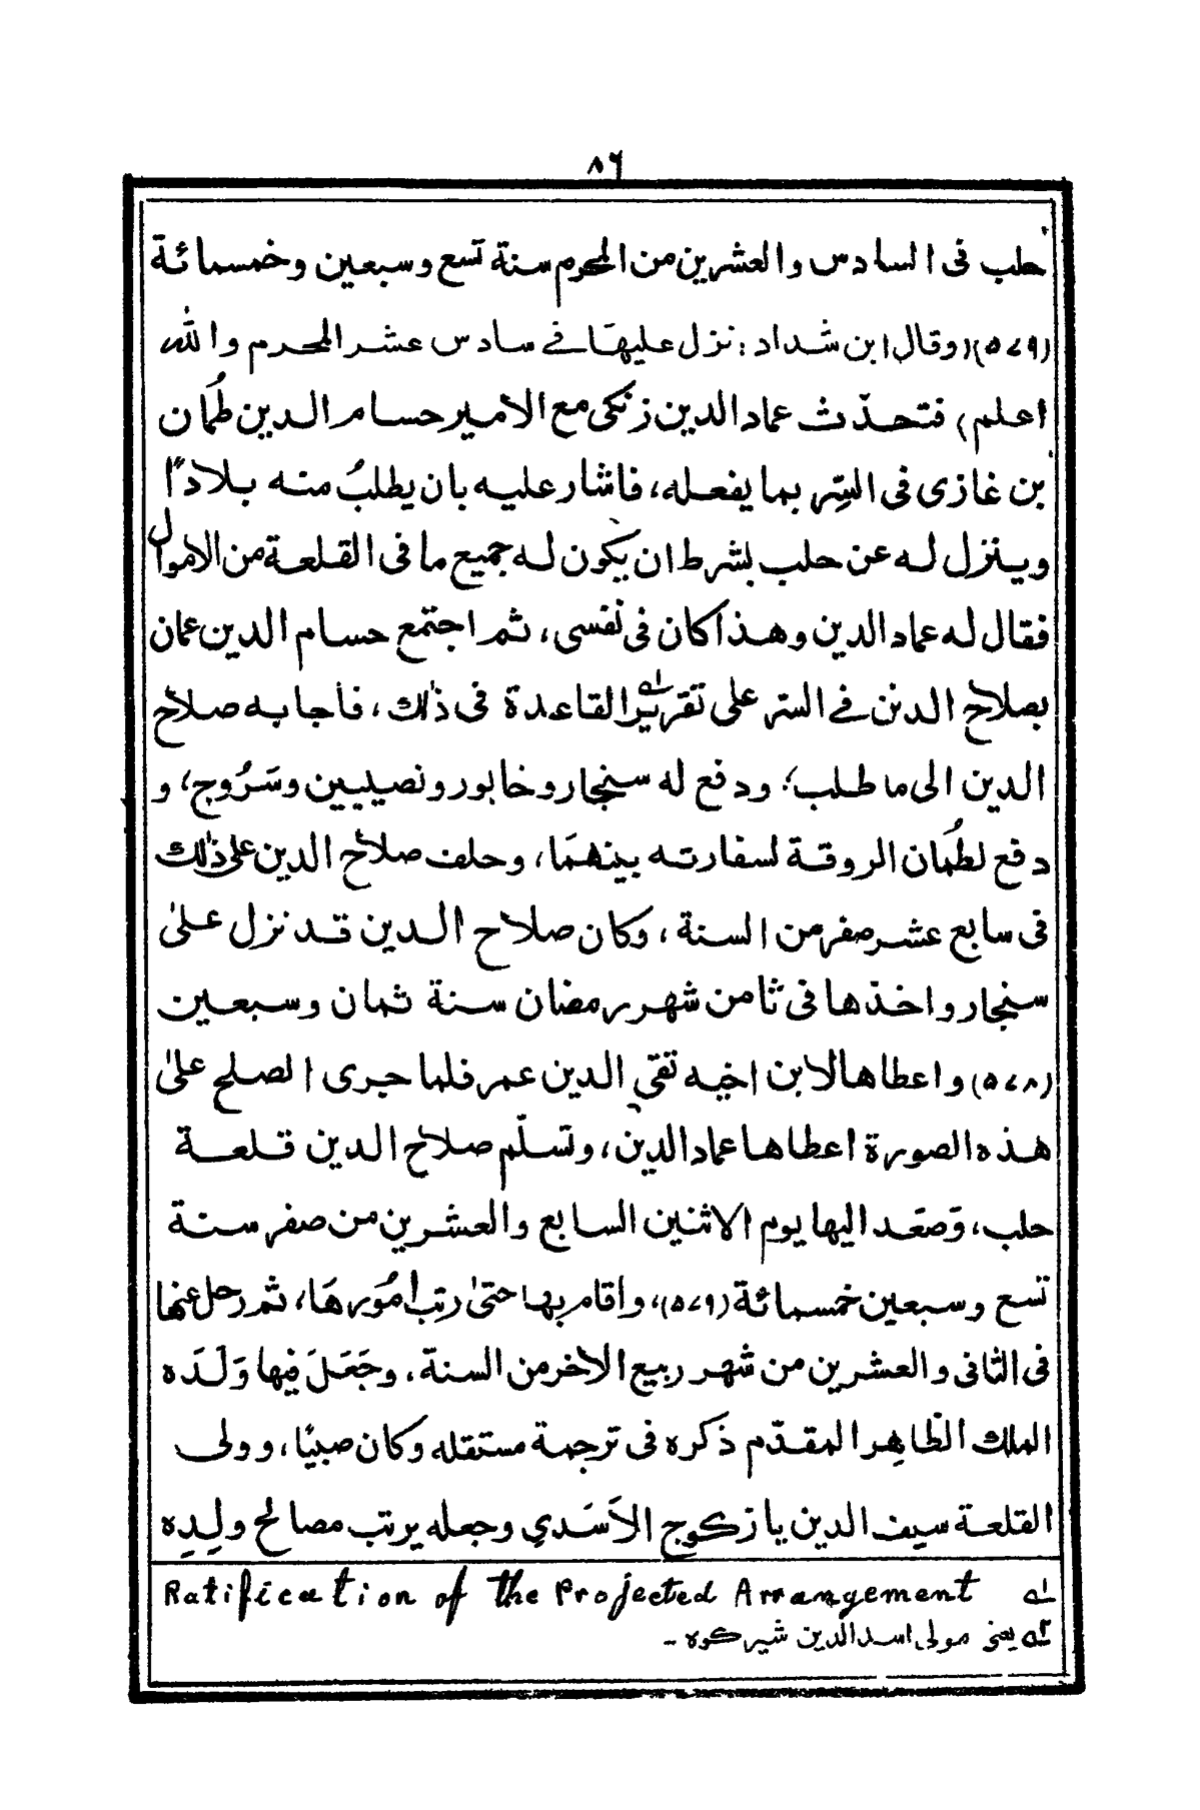 ٨٦
حلب فى السادس والعشرين من المحرم سنة تسع وسبعين وخمسمائة
(٥٧٩) (وقال ابن شداد: نزل عليهَا فے سادس عشر المحرم والله
اعلم) فتحدّث عماد الدين زنكى مع الامير حسام الدين طُمان
بن غازى فى السِّر بما يفعله، فاشار عليه بان يطلبُ منه بلادًا
وينزل له عن حلب بشرط ان يكون له جميع ما فى القلعة من الاموال
فقال له عماد الدين وهذا كان فى نفسى، ثم اجتمع حسام الدين عمان
بصلاح الدين فے السّر على تقرير القاعدة لـه فى ذٰلك، فأجابه صلاح
الدين الى ما طلب؛ ودفع له سنجار وخابور ونصيبين وسَرُوج؛ و
دفع لطُمان الروقة لسفارته بينهمَا، وحلف صلاح الدين على ذٰلك
فى سابع عشر صفر من السنة، وكان صلاح الدين قد نزل علىٰ
سنجار واخذها فى ثامن شهر رمضان سنة ثمان وسبعين
(٥٧٨) واعطاها لابن اخيه تقي الدين عمر فلما جرى الصلح علىٰ
هذه الصورة اعطاها عماد الدين، وتسلّم صلاح الدين قلعة
حلب، وَصعَد اليها يوم الاثنين السابع والعشرين من صفر سنة
تسع وسبعين خمسمائة (٥٧٩)، واقام بها حتىٰ رتب امُورهَا، ثم رحل عنها
فى الثانى والعشرين من شهر ربيع الاخر من السنة، وجَعَلَ فِيها وَلَدَه
الملك الظاهِر المقدّم ذكره فى ترجمة مستقله وكان صبيًا، وولى
القلعة سيف الدين يازكوج الاَسَدي وجعله يرتب مصالح ولِدِه
لـه Ratification of the Projected Arrangement
٢ـه يعنى مولى اسد الدين شيركوه -